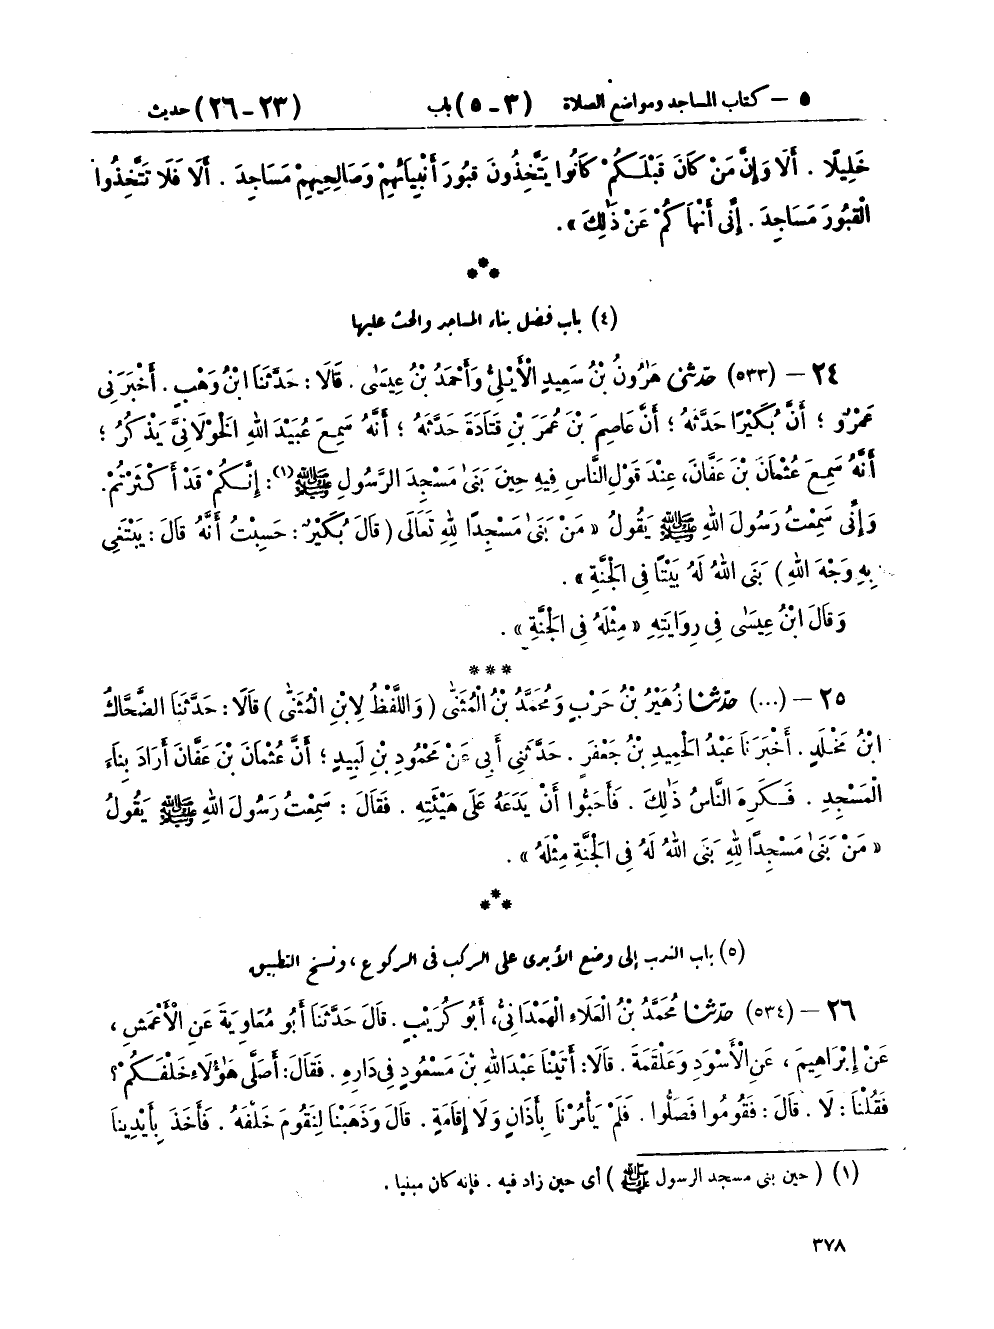 ٥ – كتاب المساجد ومواضع الصلاة (٣ – ٥) باب (٢٣ – ٢٦) حديث
خَلِيلًا . أَلَا وَإِنَّ مَنْ كَانَ قَبْلَكُمْ كَانُوا يَتَّخِذُونَ قُبُورَ أَنْبِيَائِهِمْ وَصَالِحِيهِمْ مَسَاجِدَ . أَلَا فَلَا تَتَّخِذُوا
الْقُبُورَ مَسَاجِدَ . إِنِّي أَنْهَاكُمْ عَنْ ذَٰلِكَ » .
(٤) باب فضل بناء المساجد والحث عليها
٢٤ – (٥٣٣) حدثني هَٰرُونُ بْنُ سَعِيدٍ الْأَيْلِيُّ وَأَحْمَدُ بْنُ عِيسَىٰ . قَالَا : حَدَّثَنَا ابْنُ وَهْبٍ . أَخْبَرَنِي
عَمْرٌو ؛ أَنَّ بُكَيْرًا حَدَّثَهُ ؛ أَنَّ عَاصِمَ بْنَ عُمَرَ بْنِ قَتَادَةَ حَدَّثَهُ ؛ أَنَّهُ سَمِعَ عُبَيْدَ اللهِ الْخَوْلَانِيَّ يَذْكُرُ ؛
أَنَّهُ سَمِعَ عُثْمَانَ بْنَ عَفَّانَ، عِنْدَ قَوْلِ النَّاسِ فِيهِ حِينَ بَنَىٰ مَسْجِدَ الرَّسُولِ ﷺ (١) : إِنَّكُمْ قَدْ أَكْثَرْتُمْ.
وَإِنِّي سَمِعْتُ رَسُولَ اللهِ ﷺ يَقُولُ « مَنْ بَنَىٰ مَسْجِدًا لِلهِ تَعَالَى ( قَالَ بُكَيْرٌ : حَسِبْتُ أَنَّهُ قَالَ : يَبْتَغِي
بِهِ وَجْهَ اللهِ ) بَنَى اللهُ لَهُ بَيْتًا فِي الْجَنَّةِ » .
وَقَالَ ابْنُ عِيسَىٰ فِي رِوَايَتِهِ « مِثْلَهُ فِي الْجَنَّةِ » .
* * *
٢٥ – (...) حدثنا زُهَيْرُ بْنُ حَرْبٍ وَمُحَمَّدُ بْنُ الْمُثَنَّىٰ ( وَاللَّفْظُ لِابْنِ الْمُثَنَّىٰ ) قَالَا : حَدَّثَنَا الضَّحَّاكُ
ابْنُ مَخْلَدٍ . أَخْبَرَنَا عَبْدُ الْحَمِيدِ بْنُ جَعْفَرٍ . حَدَّثَنِي أَبِي عَنْ مَحْمُودِ بْنِ لَبِيدٍ ؛ أَنَّ عُثْمَانَ بْنَ عَفَّانَ أَرَادَ بِنَاءَ
الْمَسْجِدِ . فَكَرِهَ النَّاسُ ذَٰلِكَ . فَأَحَبُّوا أَنْ يَدَعَهُ عَلَى هَيْئَتِهِ . فَقَالَ : سَمِعْتُ رَسُولَ اللهِ ﷺ يَقُولُ
« مَنْ بَنَىٰ مَسْجِدًا لِلهِ بَنَى اللهُ لَهُ فِي الْجَنَّةِ مِثْلَهُ » .
(٥) باب الندب إلى وضع الأيدي على الركب في الركوع ، ونسخ التطبيق
٢٦ – (٥٣٤) حدثنا مُحَمَّدُ بْنُ الْعَلَاءِ الْهَمْدَانِيُّ، أَبُو كُرَيْبٍ . قَالَ حَدَّثَنَا أَبُو مُعَاوِيَةَ عَنِ الْأَعْمَشِ ،
عَنْ إِبْرَاهِيمَ ، عَنِ الْأَسْوَدِ وَعَلْقَمَةَ . قَالَا : أَتَيْنَا عَبْدَ اللهِ بْنَ مَسْعُودٍ فِي دَارِهِ . فَقَالَ : أَصَلَّى هَٰؤُلَاءِ خَلْفَكُمْ ؟
فَقُلْنَا : لَا . قَالَ : فَقُومُوا فَصَلُّوا . فَلَمْ يَأْمُرْنَا بِأَذَانٍ وَلَا إِقَامَةٍ . قَالَ وَذَهَبْنَا لِنَقُومَ خَلْفَهُ . فَأَخَذَ بِأَيْدِينَا
(١) ( حين بنى مسجد الرسول ﷺ ) أى حين زاد فيه . فإنه كان مبنيا .
٣٧٨